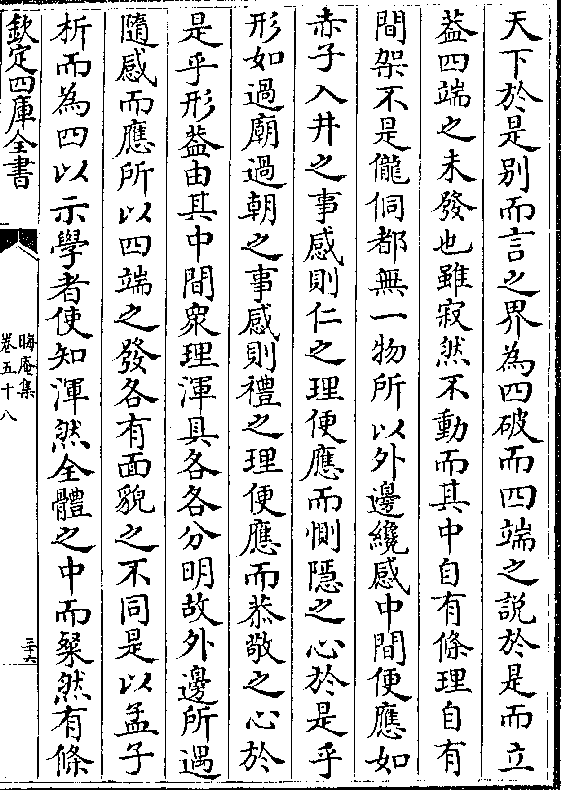 天下於是别而言之界為四破而四端之說於是而立
葢四端之未發也雖寂然不動而其中自有條理自有
間架不是儱侗都無一物所以外邊纔感中間便應如
赤子入井之事感則仁之理便應而惻隱之心於是乎
形如過廟過朝之事感則禮之理便應而恭敬之心於
是乎形葢由其中間衆理渾具各各分明故外邊所遇
隨感而應所以四端之發各有面貌之不同是以孟子
析而為四以示學者使知渾然全體之中而粲然有條
欽定四庫全書
晦庵集
卷五十八
三十六